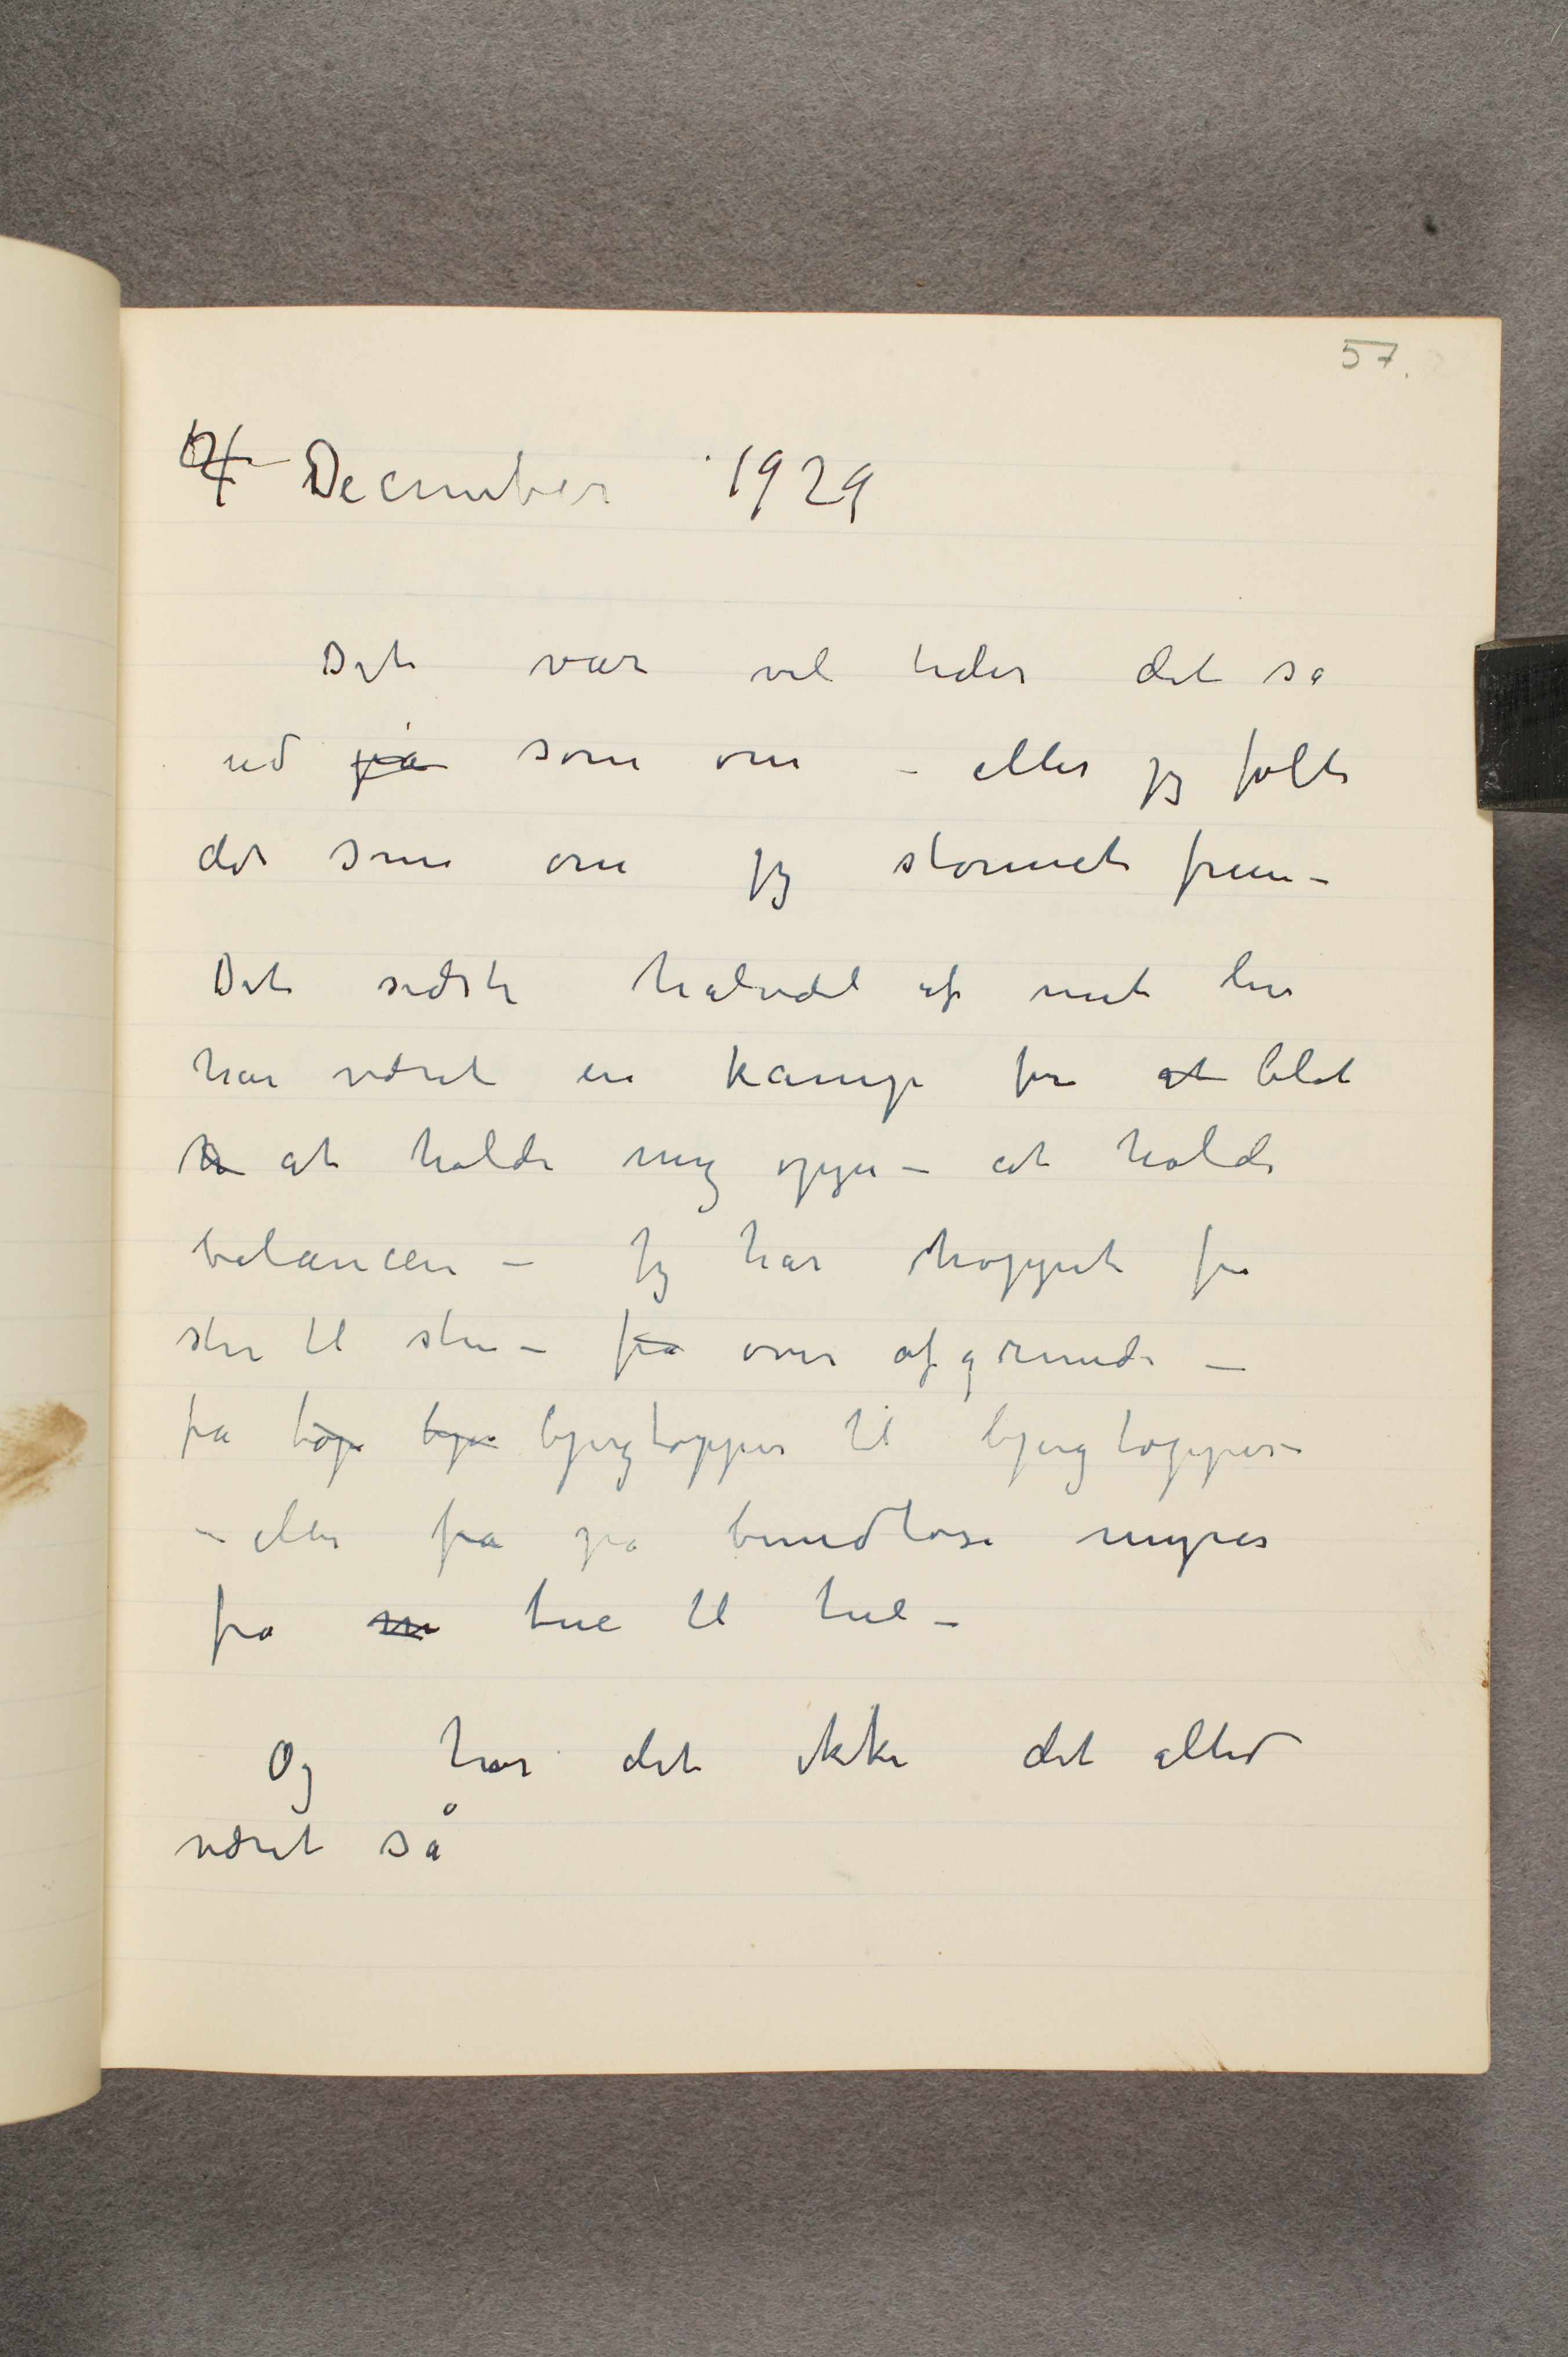 57.
December 1929
Det var vel tider det så
ud på som om – eller jeg følte
det som om jeg stormet frem –
Det sidste halvdel af mit liv
har været en kamp for at blot
h at holde mig oppe – at holde
balancen – Jeg har hoppet fra
sten til sten – fra over afgrunde –
fra top bjer bjergtopper til bjergtopper –
– eller fra på bundløse myrer
fra m tue til tue –
Og har det ikke det altid
været så